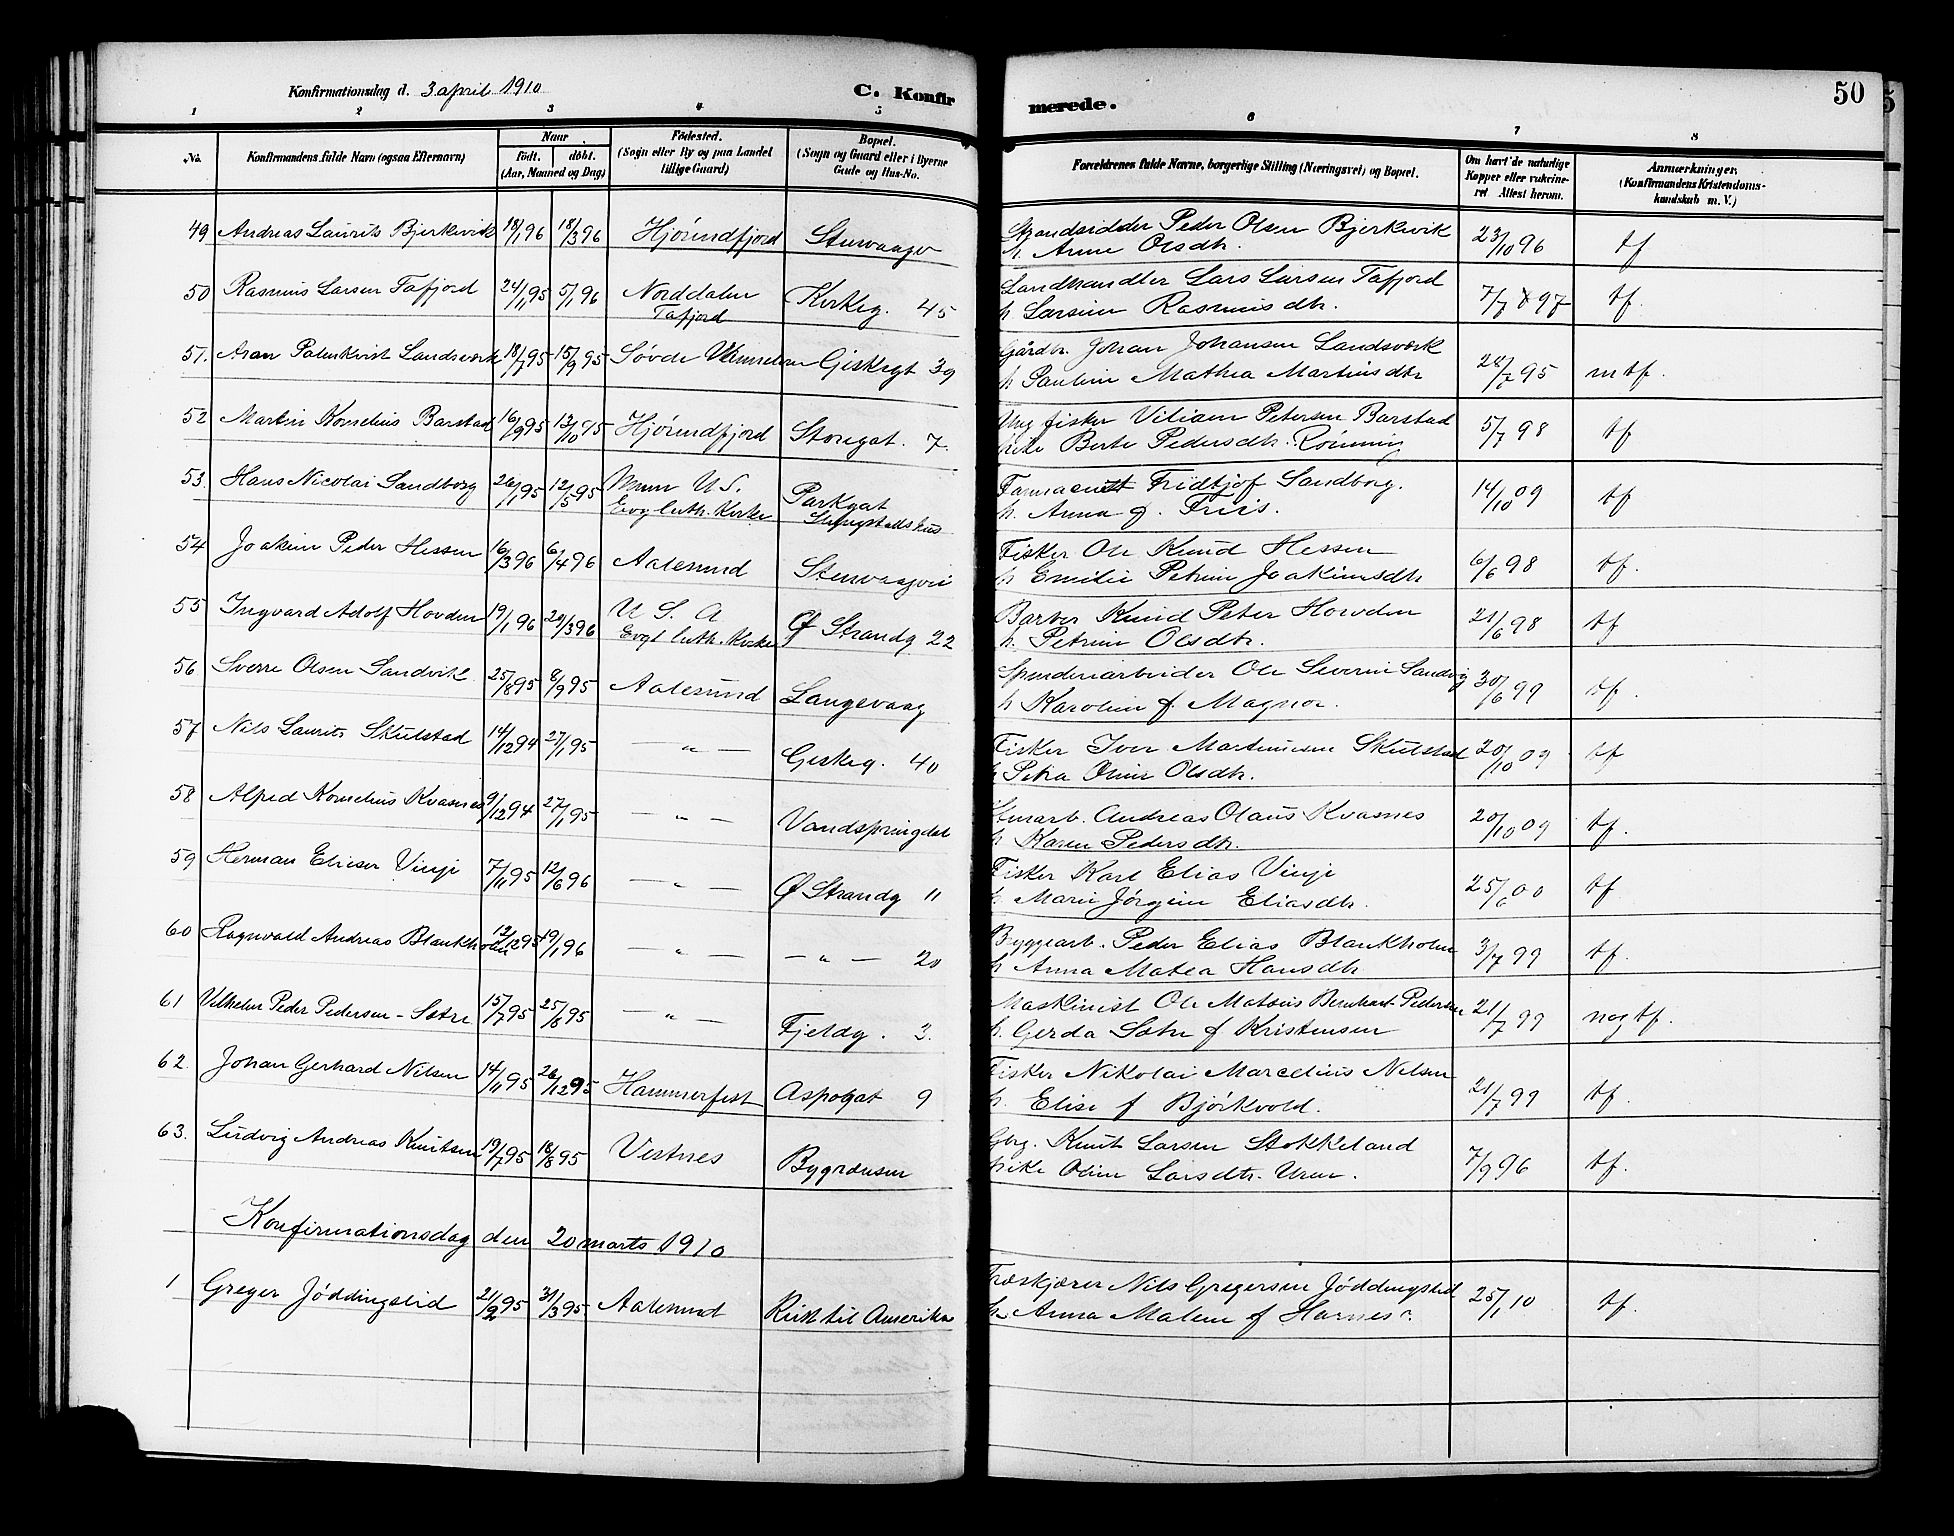 Konfirmationsdag d. 3 april 1910
C. Konfirmerede.
50
1 2 3 4 5 6 7 8
No. Konfirmandens fulde Navn (ogsaa Efternavn) Naar født. døbt. (Aar, Maaned og Dag) Fødested. (Sogn eller By og paa Landet tillige Gaard) Bopæl. (Sogn og Gaard eller i Byerne Gade og Hus-No. Forældrenes fulde Navne, borgerlige Stilling (Næringsvei) og Bopæl. Om havt de naturlige Kopper eller vakcineret Attest herom. Anmærkninger, (Konfirmandens Kristendomskundskab m. V.)
49 Andreas Laurits Bjerkevik 18/1 96 18/3 96 Hjørundfjord Stenvaagv Strandsidder Peder Olsen Bjerkvik 23/10 96 tf
h. Anne Olsdtr.
50 Rasmus Larsen Tafjord 24/11 95 5/1 96 Norddalen Kirkeg. 45 Landhandler Lars Larsen Tafjord 7/7 97 tf.
Tafjord h Larsine Rasmusdtr.
51. Aran Palmkvist Landsværk 18/7 95 15/9 95 Søvde Giskegt 39 Gårdbr. Johan Johansen Landsværk 95 mtf.
h Pauline Mathea Martinsdtr
52 Martin Kornelius Barstad 16/9 95 13/10 95 Hjørundfjord Storegat. 7. Ung fisker Viliam Petersen Barstad 5/7 98 tf
Pike Berte Pedersdtr. Rønning
53. Hans Nicolai Sandborg 26/1 95 12/5 95 U.S. Parkgat Farmaceut Fridtjof Sandborg. 14/10 09 tf
Evg luth. Kirke h. Anna f. Friis.
54 Joakim Peder Hessen 16/3 96 6/4 96 Aalesund Stenvaagvei Fisker Ole Knud Hessen 6/6 98 tf.
h Emilie Petrine Joakimsdtr
55 Ingvard Adolf Hovden 19/1 96 20/3 96 U S. A Ø Strandg 22 Barber Knud Peter Hovden 21/6 98 tf
Evgl luth. Kirke h. Petrine Olsdtr.
56 Sverre Olsen Sandvik 25/8 95 8/9 95 Aalesund Langevaag Ole Severin Sandvig 30/6 99 tf.
h Karoline f. Magnor.
57 Nils Laurits Skulstad 14/12 94 27/1 95 — " — Giskeg. 40 Fisker Iver Martinusen Skulstad 20/10 09 tf
h Petra Oline Olsdtr.
58 Alfred Kornelius Kvasnes 9/12 94 27/1 95 — " — Vandspringdal Stenarb. Andreas Olaus Kvasnes 20/10 09 tf.
h Karen Pedersdtr.
59 Herman Elieser Vinje 7/11 95 12/6 96 — " — Ø Strandg 11 Fisker Karl Elias Vinje 25/6 00 tf
h. Marie Jørgine Eliasdtr.
60 Ragnvald Andreas Blankholm 12/12 95 19/1 96 — " — — " — 20 Byggearb. Peder Elias Blankholm 3/7 99 tf.
h Anna Matea Hansdtr
61 Vilhelm Peder Pedersen - Sætre 15/7 95 25/8 95 — " — Fjeldg. 3. Maskinist Ole Mateus Bernhart Pedersen 21/7 99 nog tf.
h. Gerda Sætre f Kristensen
62. Johan Gerhard Nilsen 14/11 95 26/12 95 Hammerfest Aspøgat 9 Fisker Nikolai Marcelius Nilsen 21/7 99 tf.
h. Elise f Bjørkvold.
63. Ludvig Andreas Knutsen 19/7 95 18/8 95 Vestnes Bygrænsen Gbrg. Knut Larsen Stokkeland 7/9 96 tf.
Pike Oline Larsdtr.
Konfirmationsdag den 20 marts 1910
1 Greger Jøddingslid 21/2 95 31/3 95 Aalesund Reist til Amerika Træskjærer Nils Gregersen Jøddingslid 25/1 10 tf.
h. Anna Malene f Harnes.